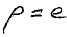 ρ = e